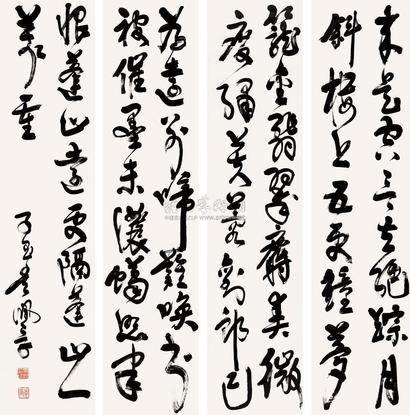 來是空言去絕蹤月
斜樓上五更鐘夢
籠金翡翠麝熏微
度繡芙蓉劉郎已
為遠別啼難喚書
被催成墨未濃蠟照半
恨蓬山遠更隔蓬山一
萬重
子玉